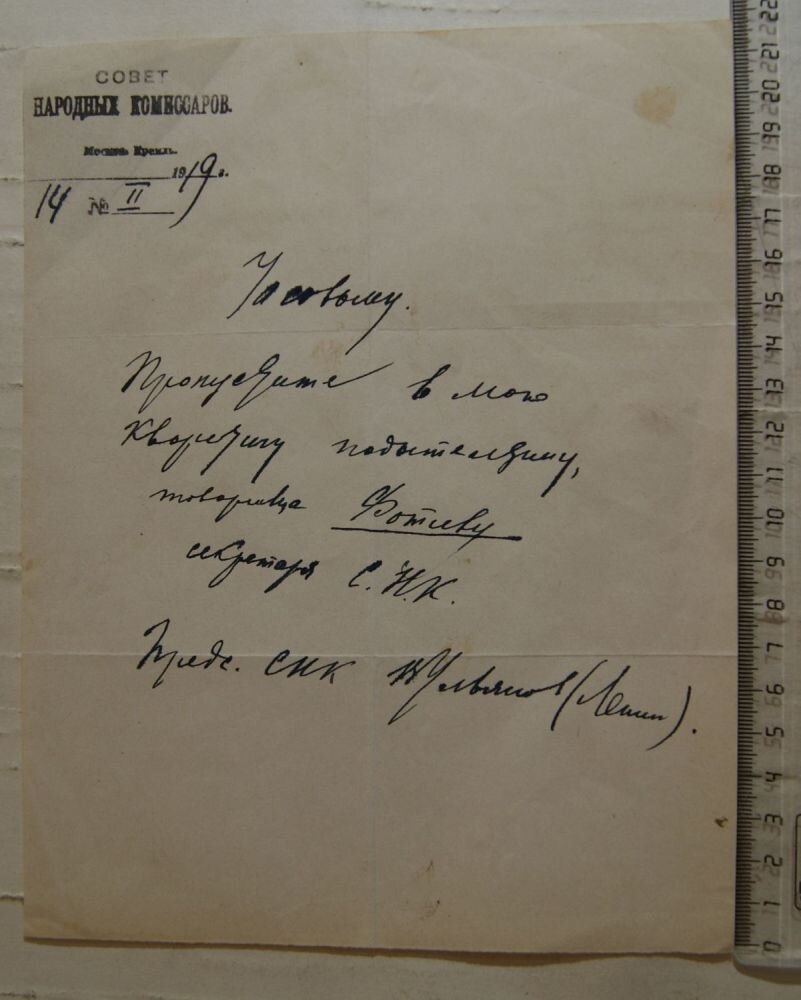 СОВЕТ
НАРОДНЫХ КОМИССАРОВ.
Москва Кремль.
1919 г.
14 № II
Часовому.
Пропустите в мою
квартиру подательницу,
товарища Фотиеву
секретаря С.Н.К.
Предс. СНК В Ульянов (Ленин).
0 1 2 3 4 5 6 7 8 9 10 11 12 13 14 15 16 17 18 19 20 21 22